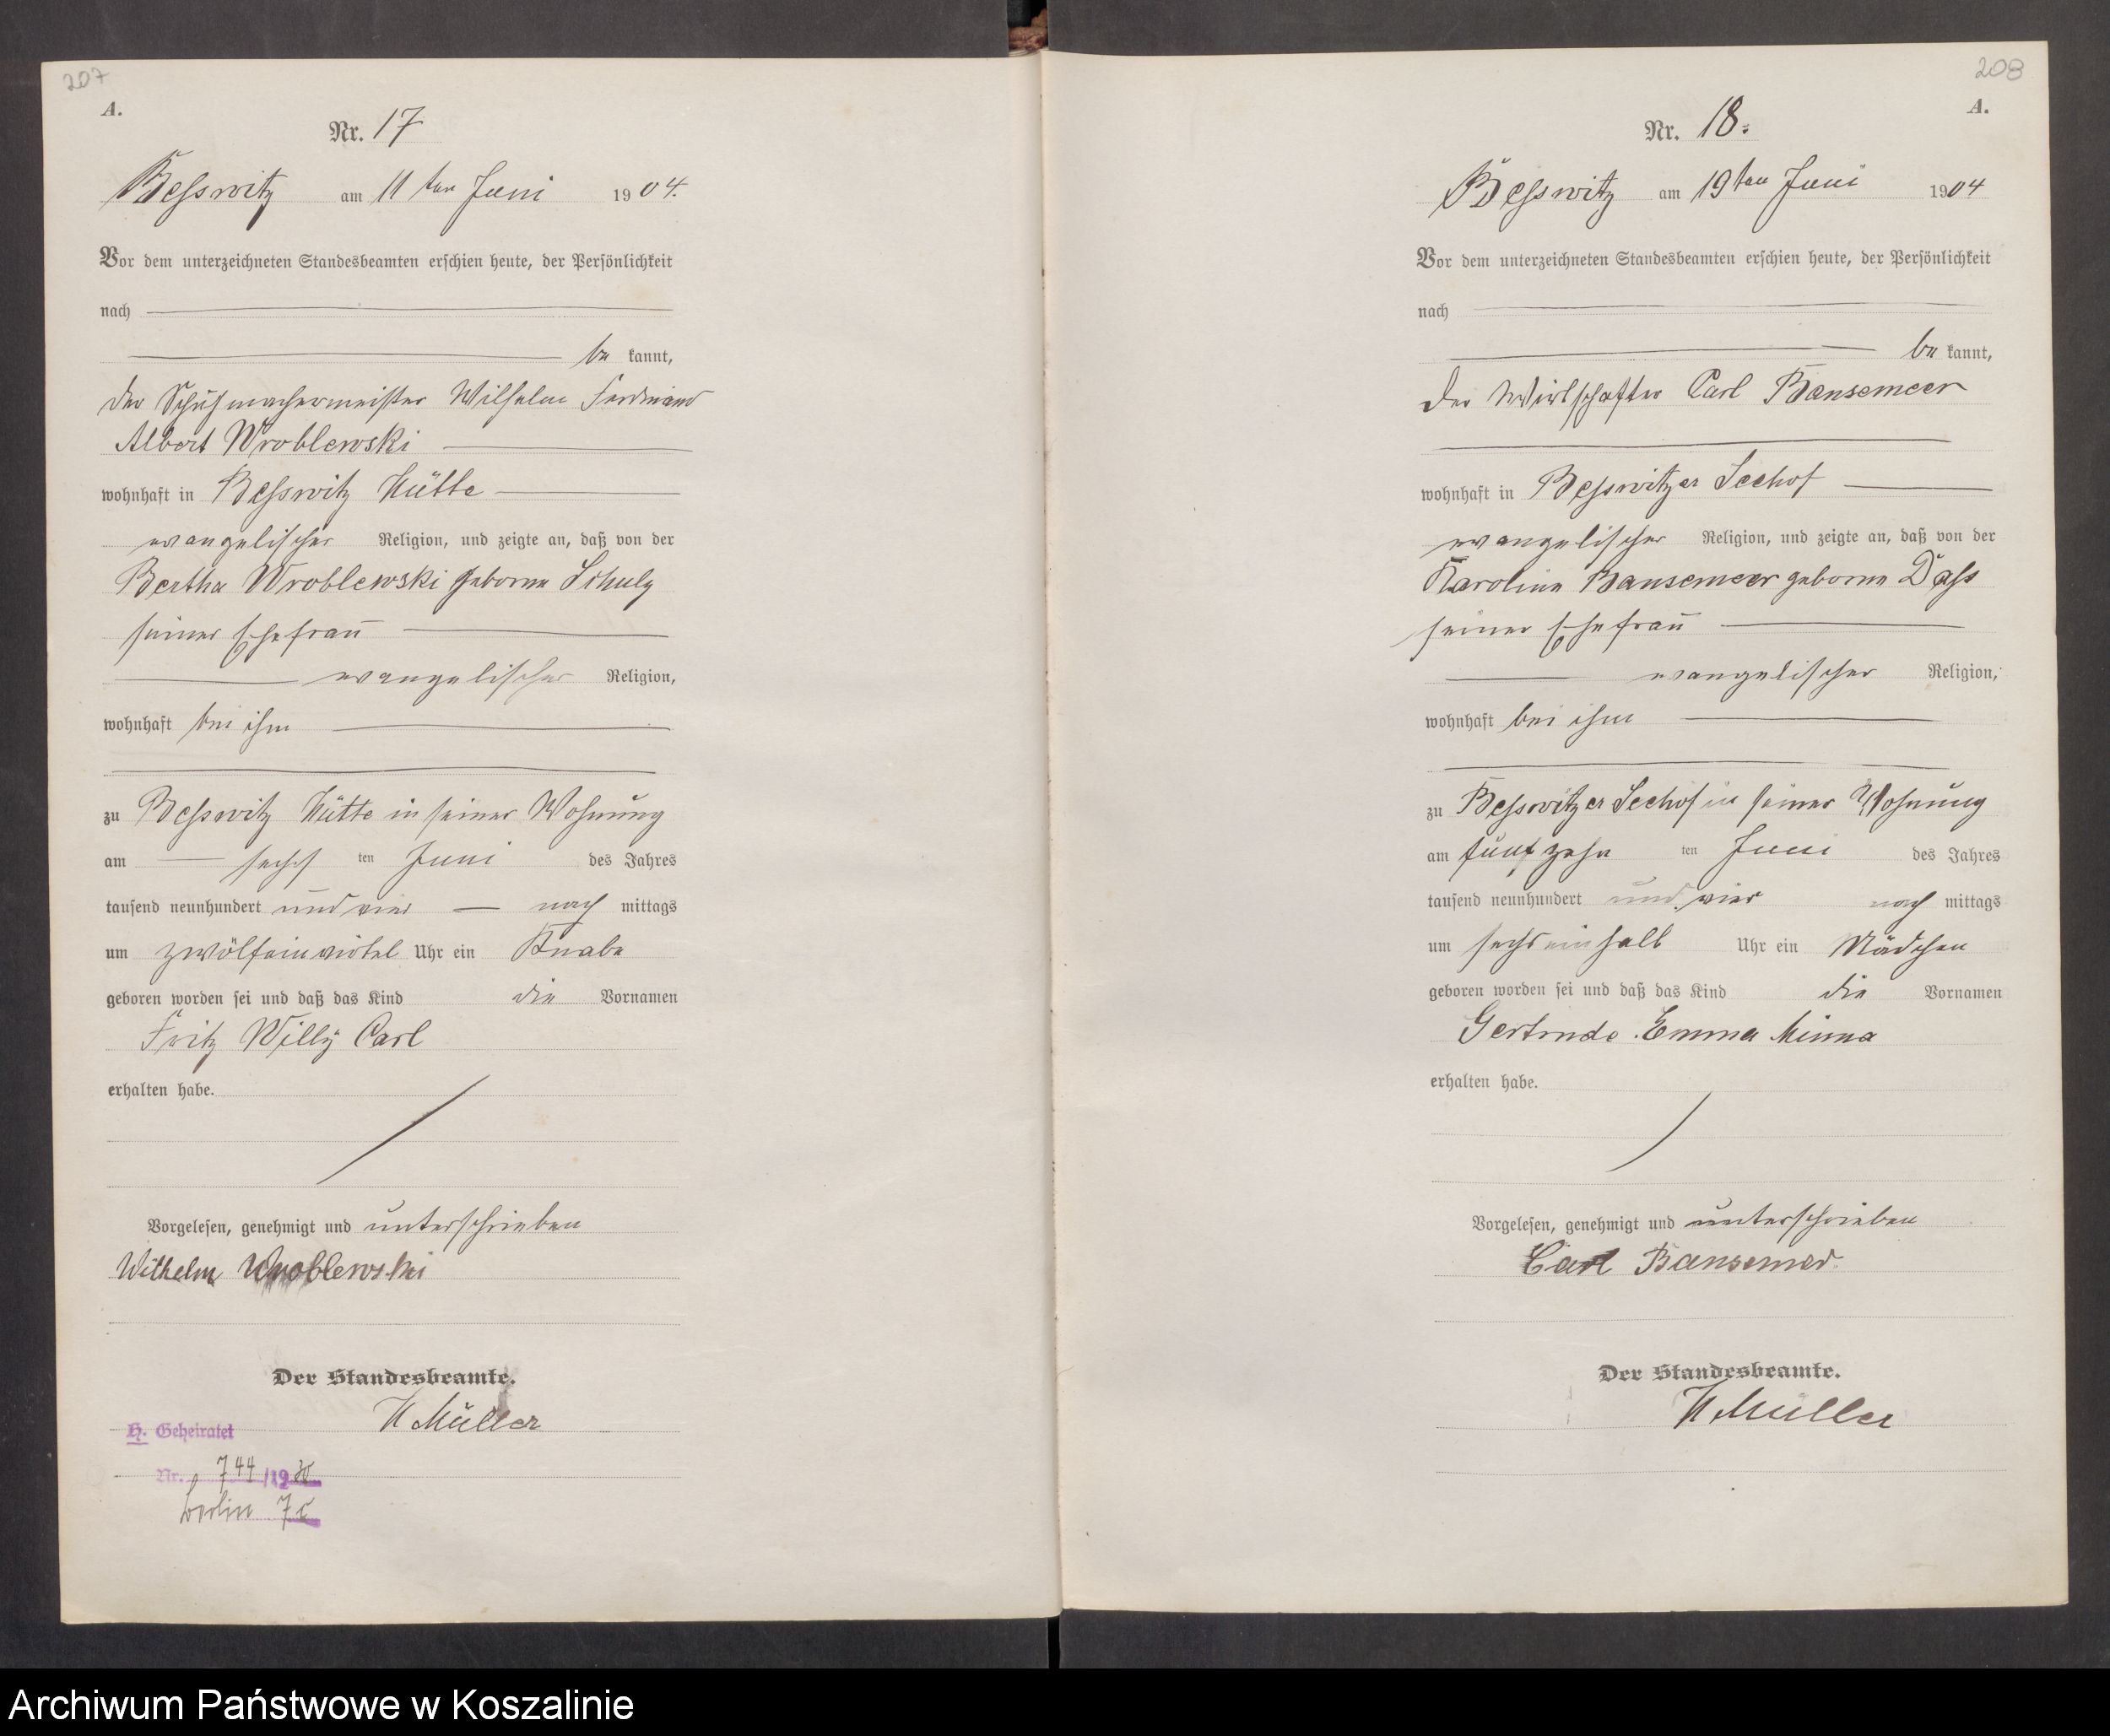 207
A.
Nr. 17
Besswitz am 11ten Juni 1904.
Vor dem unterzeichneten Standesbeamten erschien heute, der Persönlichkeit
nach
be kannt,
der Schuhmachermeister Wilhelm Ferdinand
Albert Wroblewski
wohnhaft in Besswitz Hütte
evangelischer Religion, und zeigte an, daß von der
Bertha Wroblewski geborne Schulz
seiner Ehefrau
evangelischer Religion,
wohnhaft bei ihm
zu Besswitz Hütte in seiner Wohnung
am sechs ten Juni des Jahres
tausend neunhundert und vier nach mittags
um zwölfeinviertel Uhr ein Knabe
geboren worden sei und daß das Kind die Vornamen
Fritz Willy Carl
erhalten habe.
Vorgelesen, genehmigt und unterschrieben
Wilhelm Wroblewski
Der Standesbeamte.
H Müller
H. Geheiratet
Nr. 744/1930
Berlin 7c
208
A.
Nr. 18.
Besswitz am 19ten Juni 1904
Vor dem unterzeichneten Standesbeamten erschien heute, der Persönlichkeit
nach
be kannt,
der Wirtschafter Carl Bansemeer
wohnhaft in Besswitzer Seehof
evangelischer Religion, und zeigte an, daß von der
Karoline Bansemeer geborne Dass
seiner Ehefrau
evangelischer Religion,
wohnhaft bei ihm
zu Besswitzer Seehof in seiner Wohnung
am fünfzehn ten Juni des Jahres
tausend neunhundert und vier nach mittags
um sechseinhalb Uhr ein Mädchen
geboren worden sei und daß das Kind die Vornamen
Gertrude Emma Minna
erhalten habe.
Vorgelesen, genehmigt und unterschrieben
Carl Bansemer
Der Standesbeamte.
H Müller
Archiwum Państwowe w Koszalinie